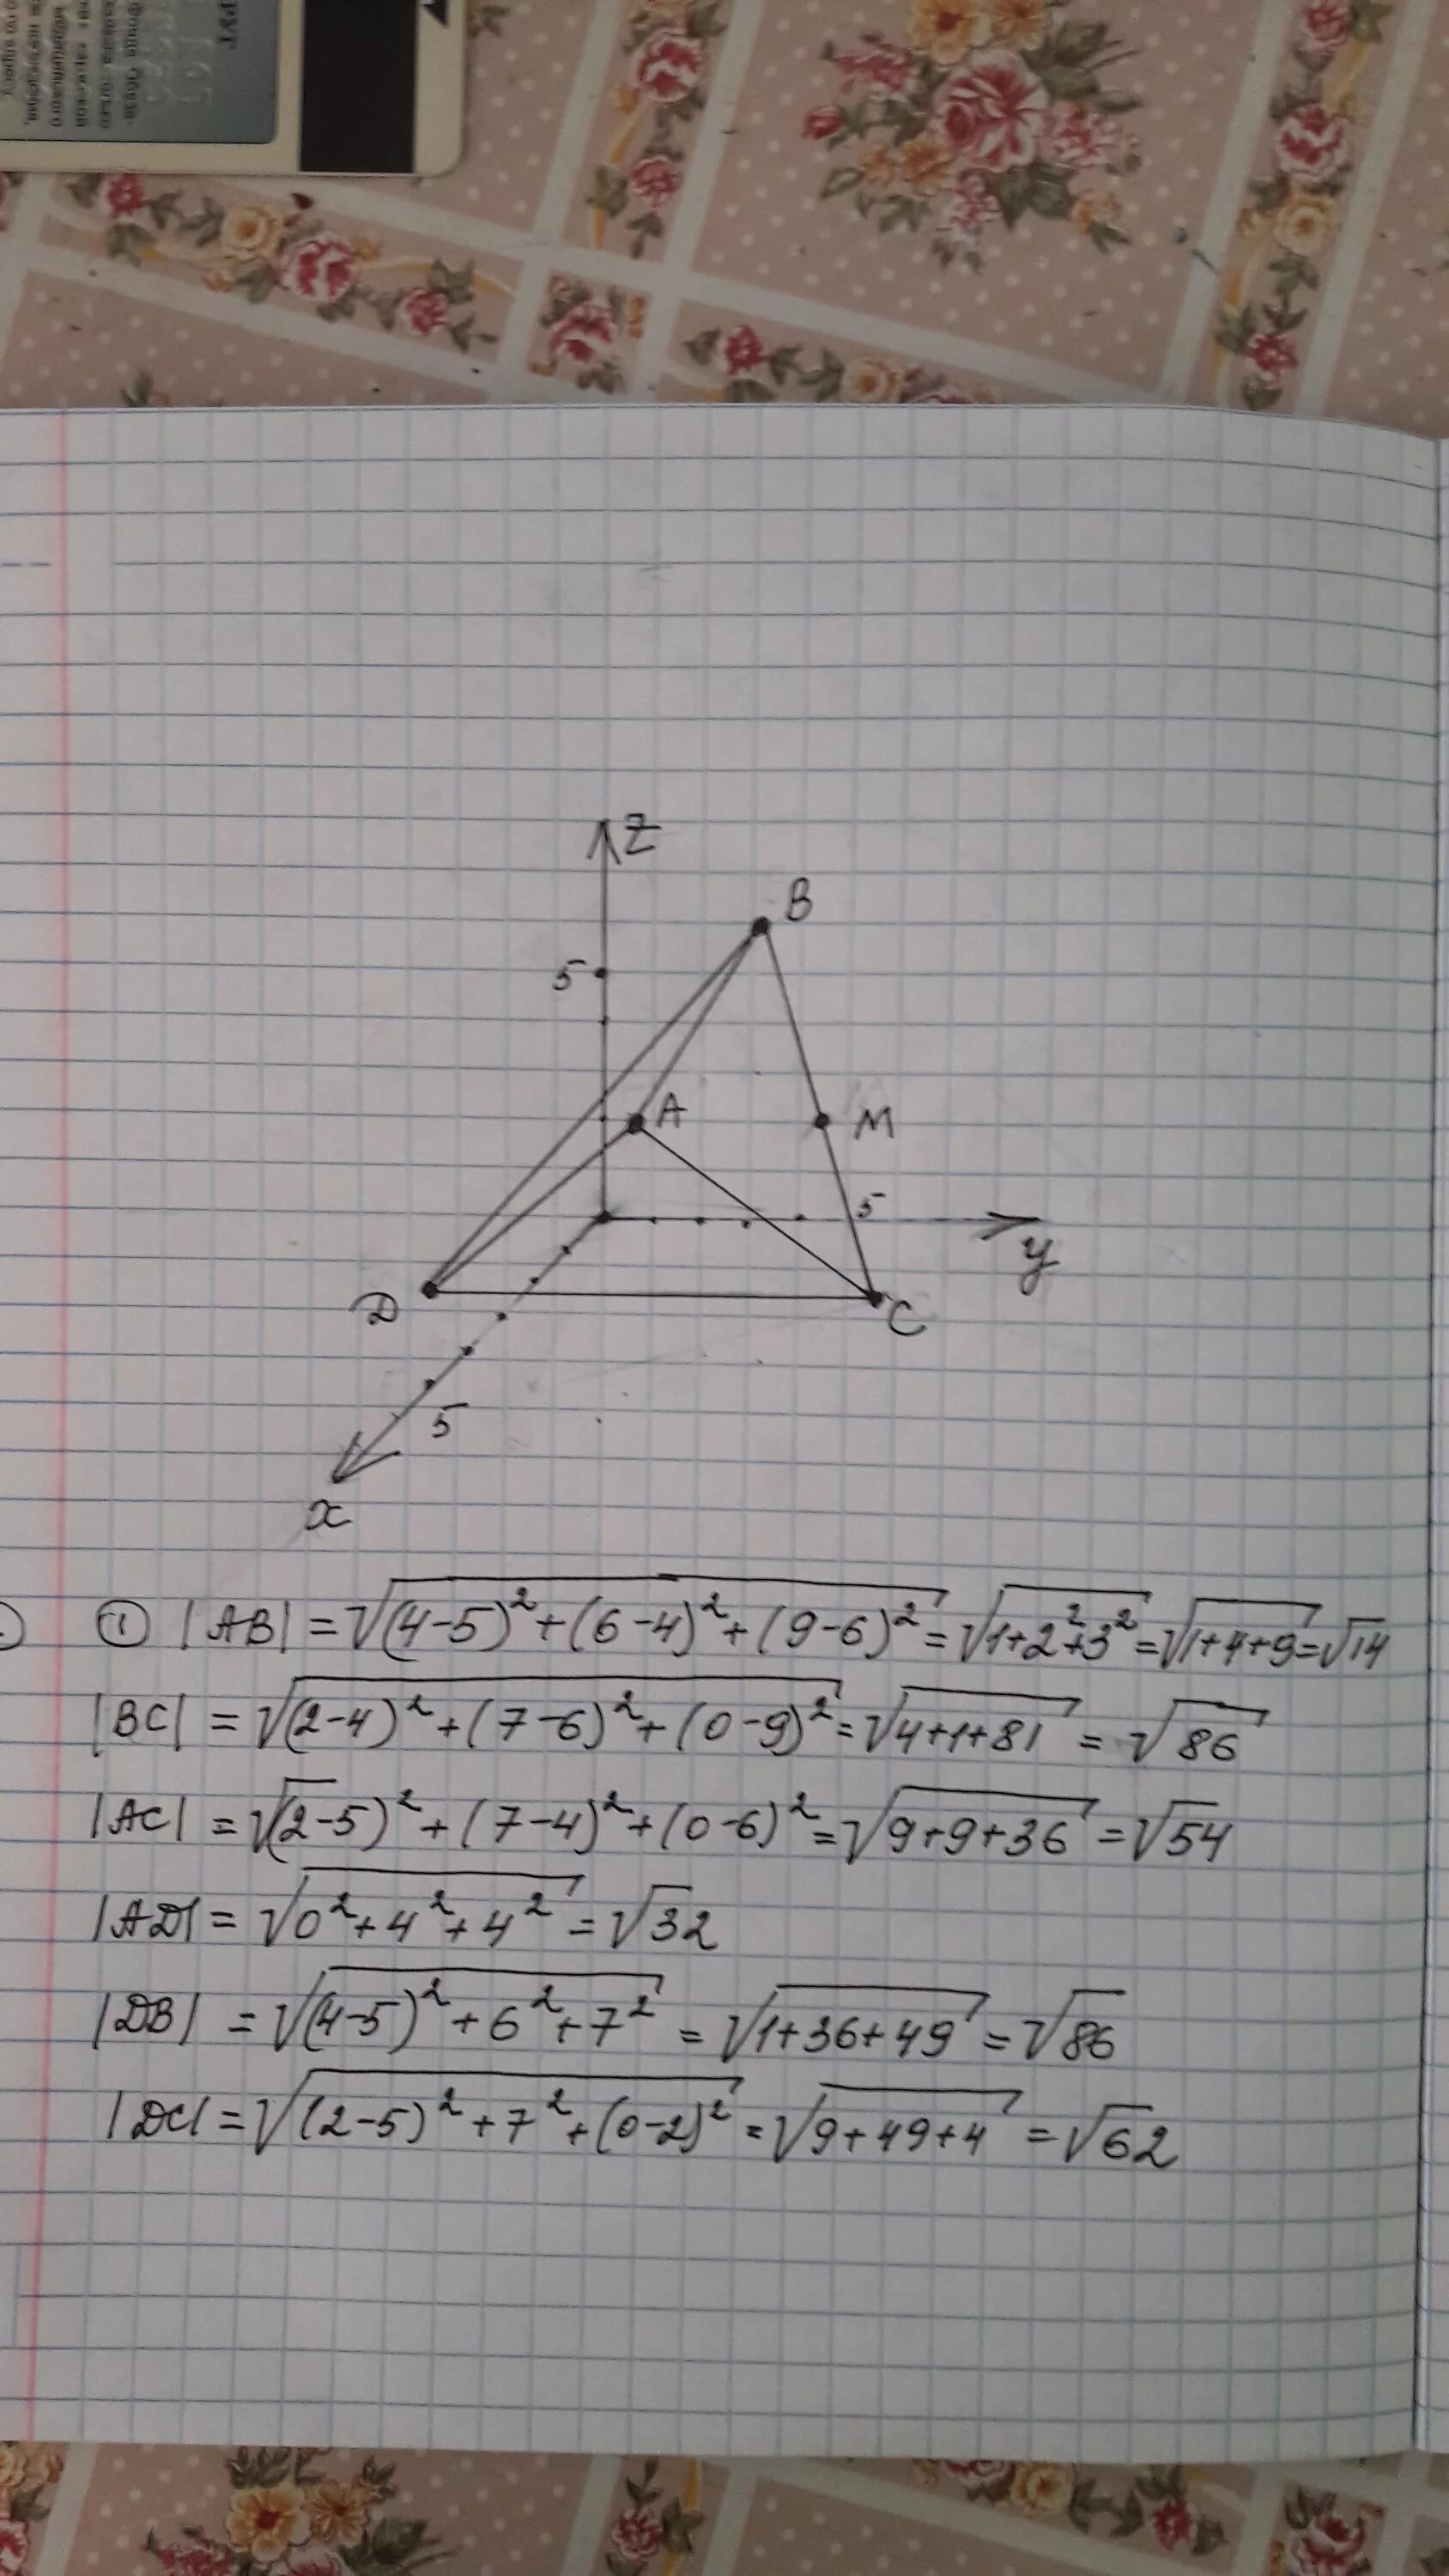 Z
B
5
A
M
5
y
D
C
5
x
① |AB| = √(4-5)²+(6-4)²+(9-6)² = √1+2²+3² = √1+4+9 = √14
|BC| = √(2-4)²+(7-6)²+(0-9)² = √4+1+81 = √86
|AC| = √(2-5)²+(7-4)²+(0-6)² = √9+9+36 = √54
|AD| = √0²+4²+4² = √32
|DB| = √(4-5)²+6²+7² = √1+36+49 = √86
|DC| = √(2-5)²+7²+(0-2)² = √9+49+4 = √62